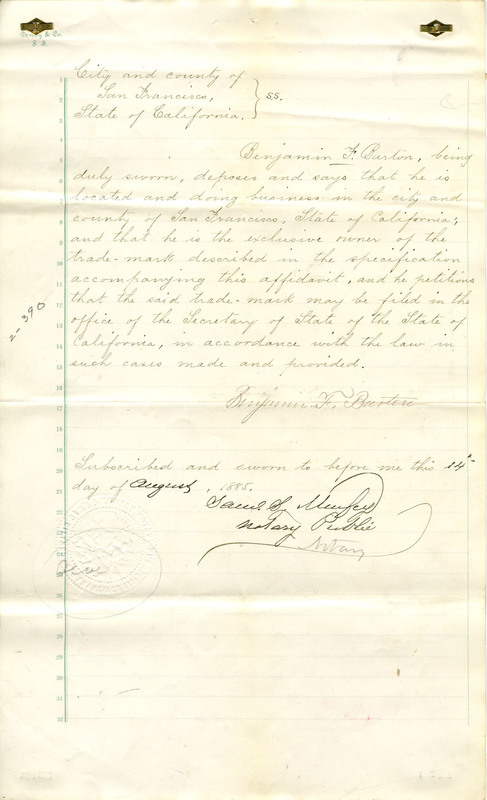 Dewey & Co.
S.F.
City and county of
San Francisco, } S.S.
State of California.
Benjamin F. Barton, being
duly sworn, deposes and says that he is
located and doing business in the city and
county of San Francisco, State of California;
and that he is the exclusive owner of the
trade-mark described in the specification
accompanying this affidavit, and he petitions
that the said trade-mark may be filed in the
office of the Secretary of State of the State of
California, in accordance with the law in
such cases made and provided.
Benjamin F. Barton
Subscribed and sworn to before me this 14th
day of August, 1885.
Notary Public
390
1
2
3
4
5
6
7
8
9
10
11
12
13
14
15
16
17
18
19
20
21
22
23
24
25
26
27
28
29
30
31
32